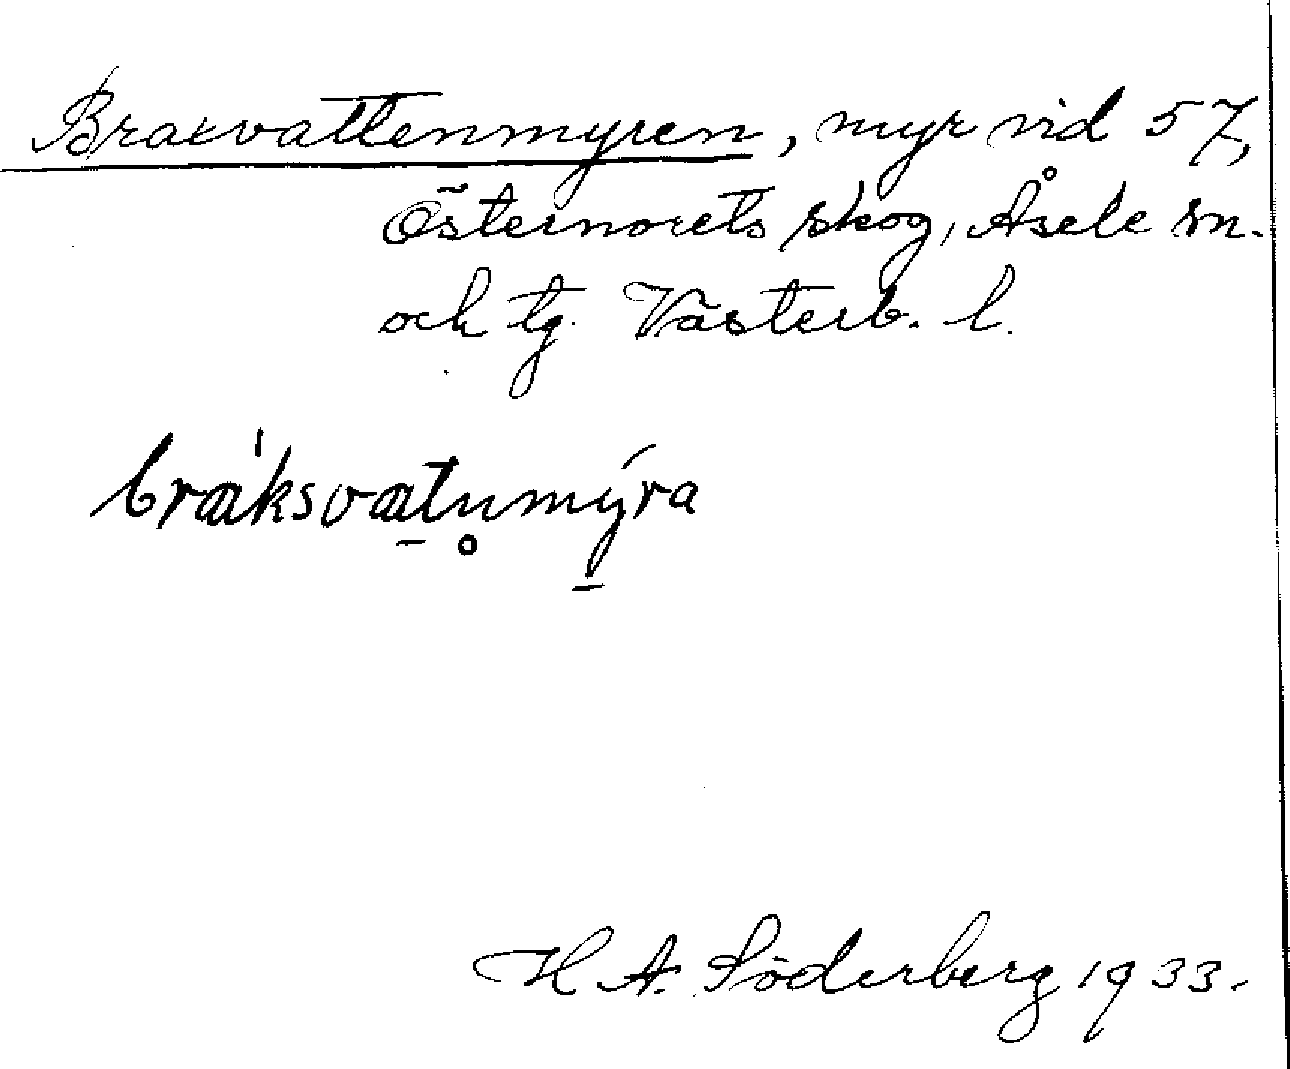 Braxvattenmyren, myr vid 57,
Östernorets skog, Åsele sn.
och tg. Västerb. l.
bráksvatn̥mýra
H A. Söderberg 1933.